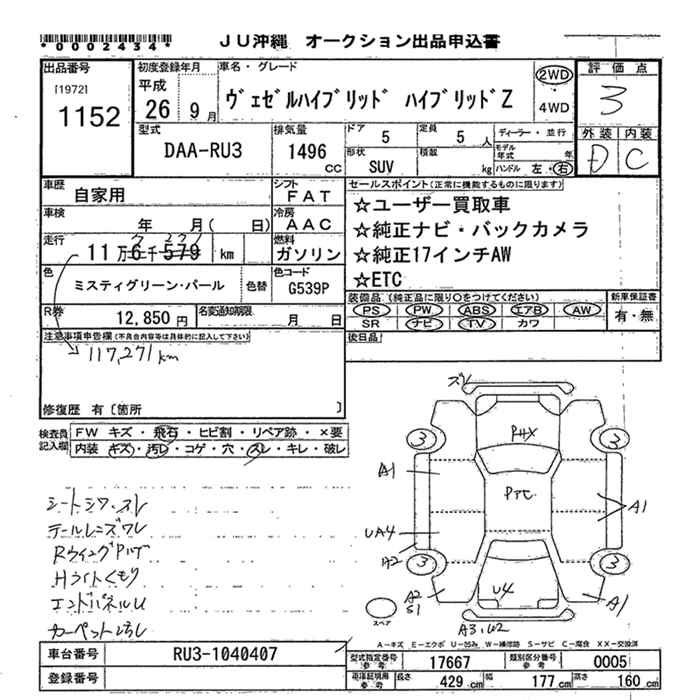 *0002434*
JU沖縄 オークション出品申込書
出品番号
[1972]
1152
初度登録年月
平成
26 9月
車名・グレード
ヴェゼルハイブリッド ハイブリッドZ
2WD
4WD
評価点
3
外装 内装
D C
型式
DAA-RU3
排気量
1496 CC
ドア 5
定員 5人
形状
SUV
積載
kg
ディーラー・並行
モデル年式 年
ハンドル 左・右
車歴
自家用
シフト
FAT
車検
年 月( 日)
冷房
AAC
走行
11万6千579 km
7 271
燃料
ガソリン
色
ミスティグリーン・パール
色替
色コード
G539P
R券
12,850円
名変通知期限
月 日
セールスポイント(正常に機能するものに限ります)
☆ユーザー買取車
☆純正ナビ・バックカメラ
☆純正17インチAW
☆ETC
装備品(純正品に限り〇をつけてください)
PS PW ABS エアB AW
SR ナビ TV カワ
新車保証書
有・無
後日品
注意事項申告欄(不具合内容等は具体的に記入して下さい)
117,271km
修復歴 有〔箇所 〕
検査員記入欄
FW キズ・飛石・ヒビ割・リペア跡・×要
内装 キズ・汚レ・コゲ・穴・スレ・キレ・破レ
シートシワ・スレ
テールレンズワレ
RウイングPハゲ
Hライトくもり
エンドパネルU
カーペット汚レ
スレ
3
3
A1
A1
UA4
A2
3
3
A2
S1
U4
A1
A3.U2
スペア
A-キズ E-エクボ U-凹み W-補修跡 S-サビ C-腐食 XX-交換済
車台番号
RU3-1040407
登録番号
型式指定番号
参考
17667
類別区分番号
参考
0005
車庫証明用
参考
長さ 429cm
幅 177cm
高さ 160cm